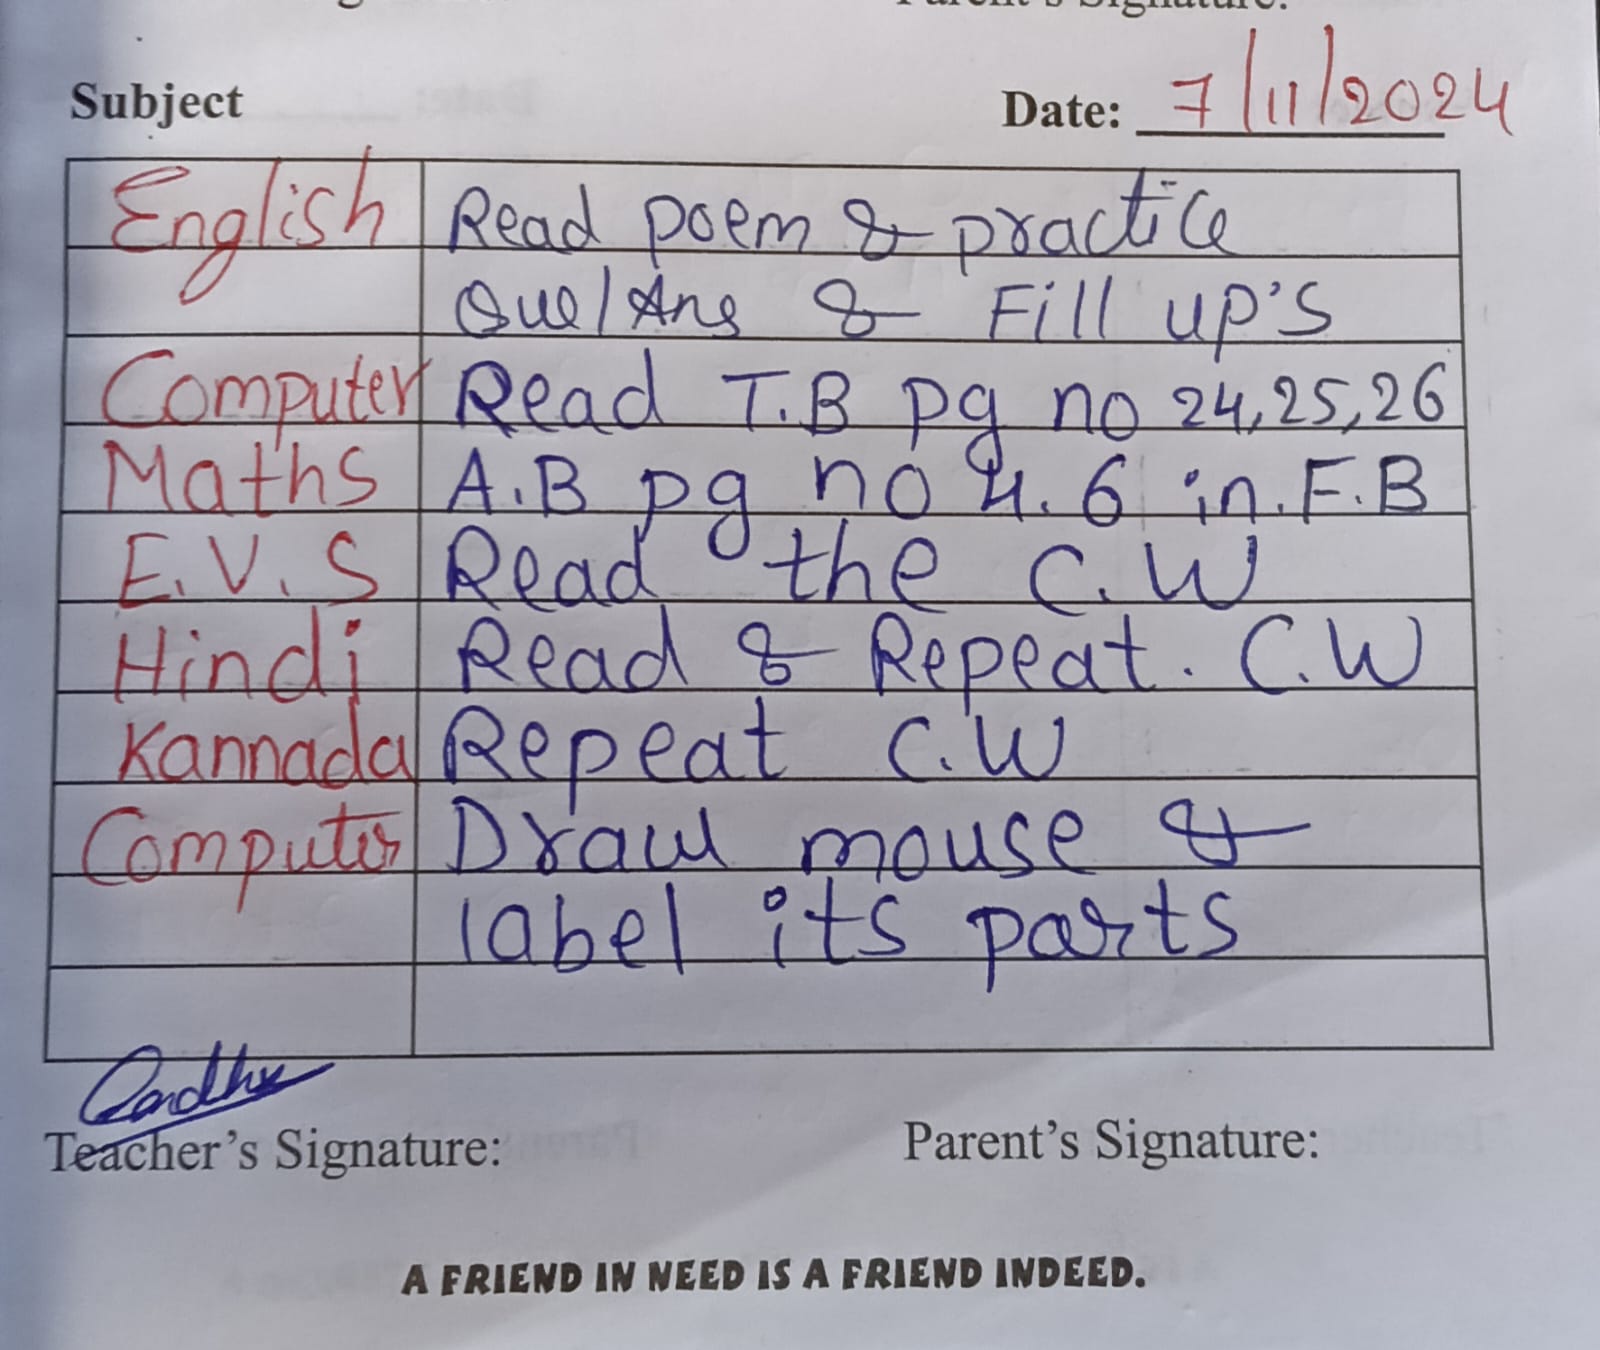 Parent's Signature:
Subject
Date: 7/11/2024
English Read poem & practice
Que/Ans & Fill up's
Computer Read T.B pg no 24,25,26
Maths A.B pg no 4.6 in.F.B
E.V.S Read the C.W
Hindi Read & Repeat. C.W
Kannada Repeat C.W
Computer Draw mouse &
label its parts
Teacher's Signature:
Parent's Signature:
A FRIEND IN NEED IS A FRIEND INDEED.